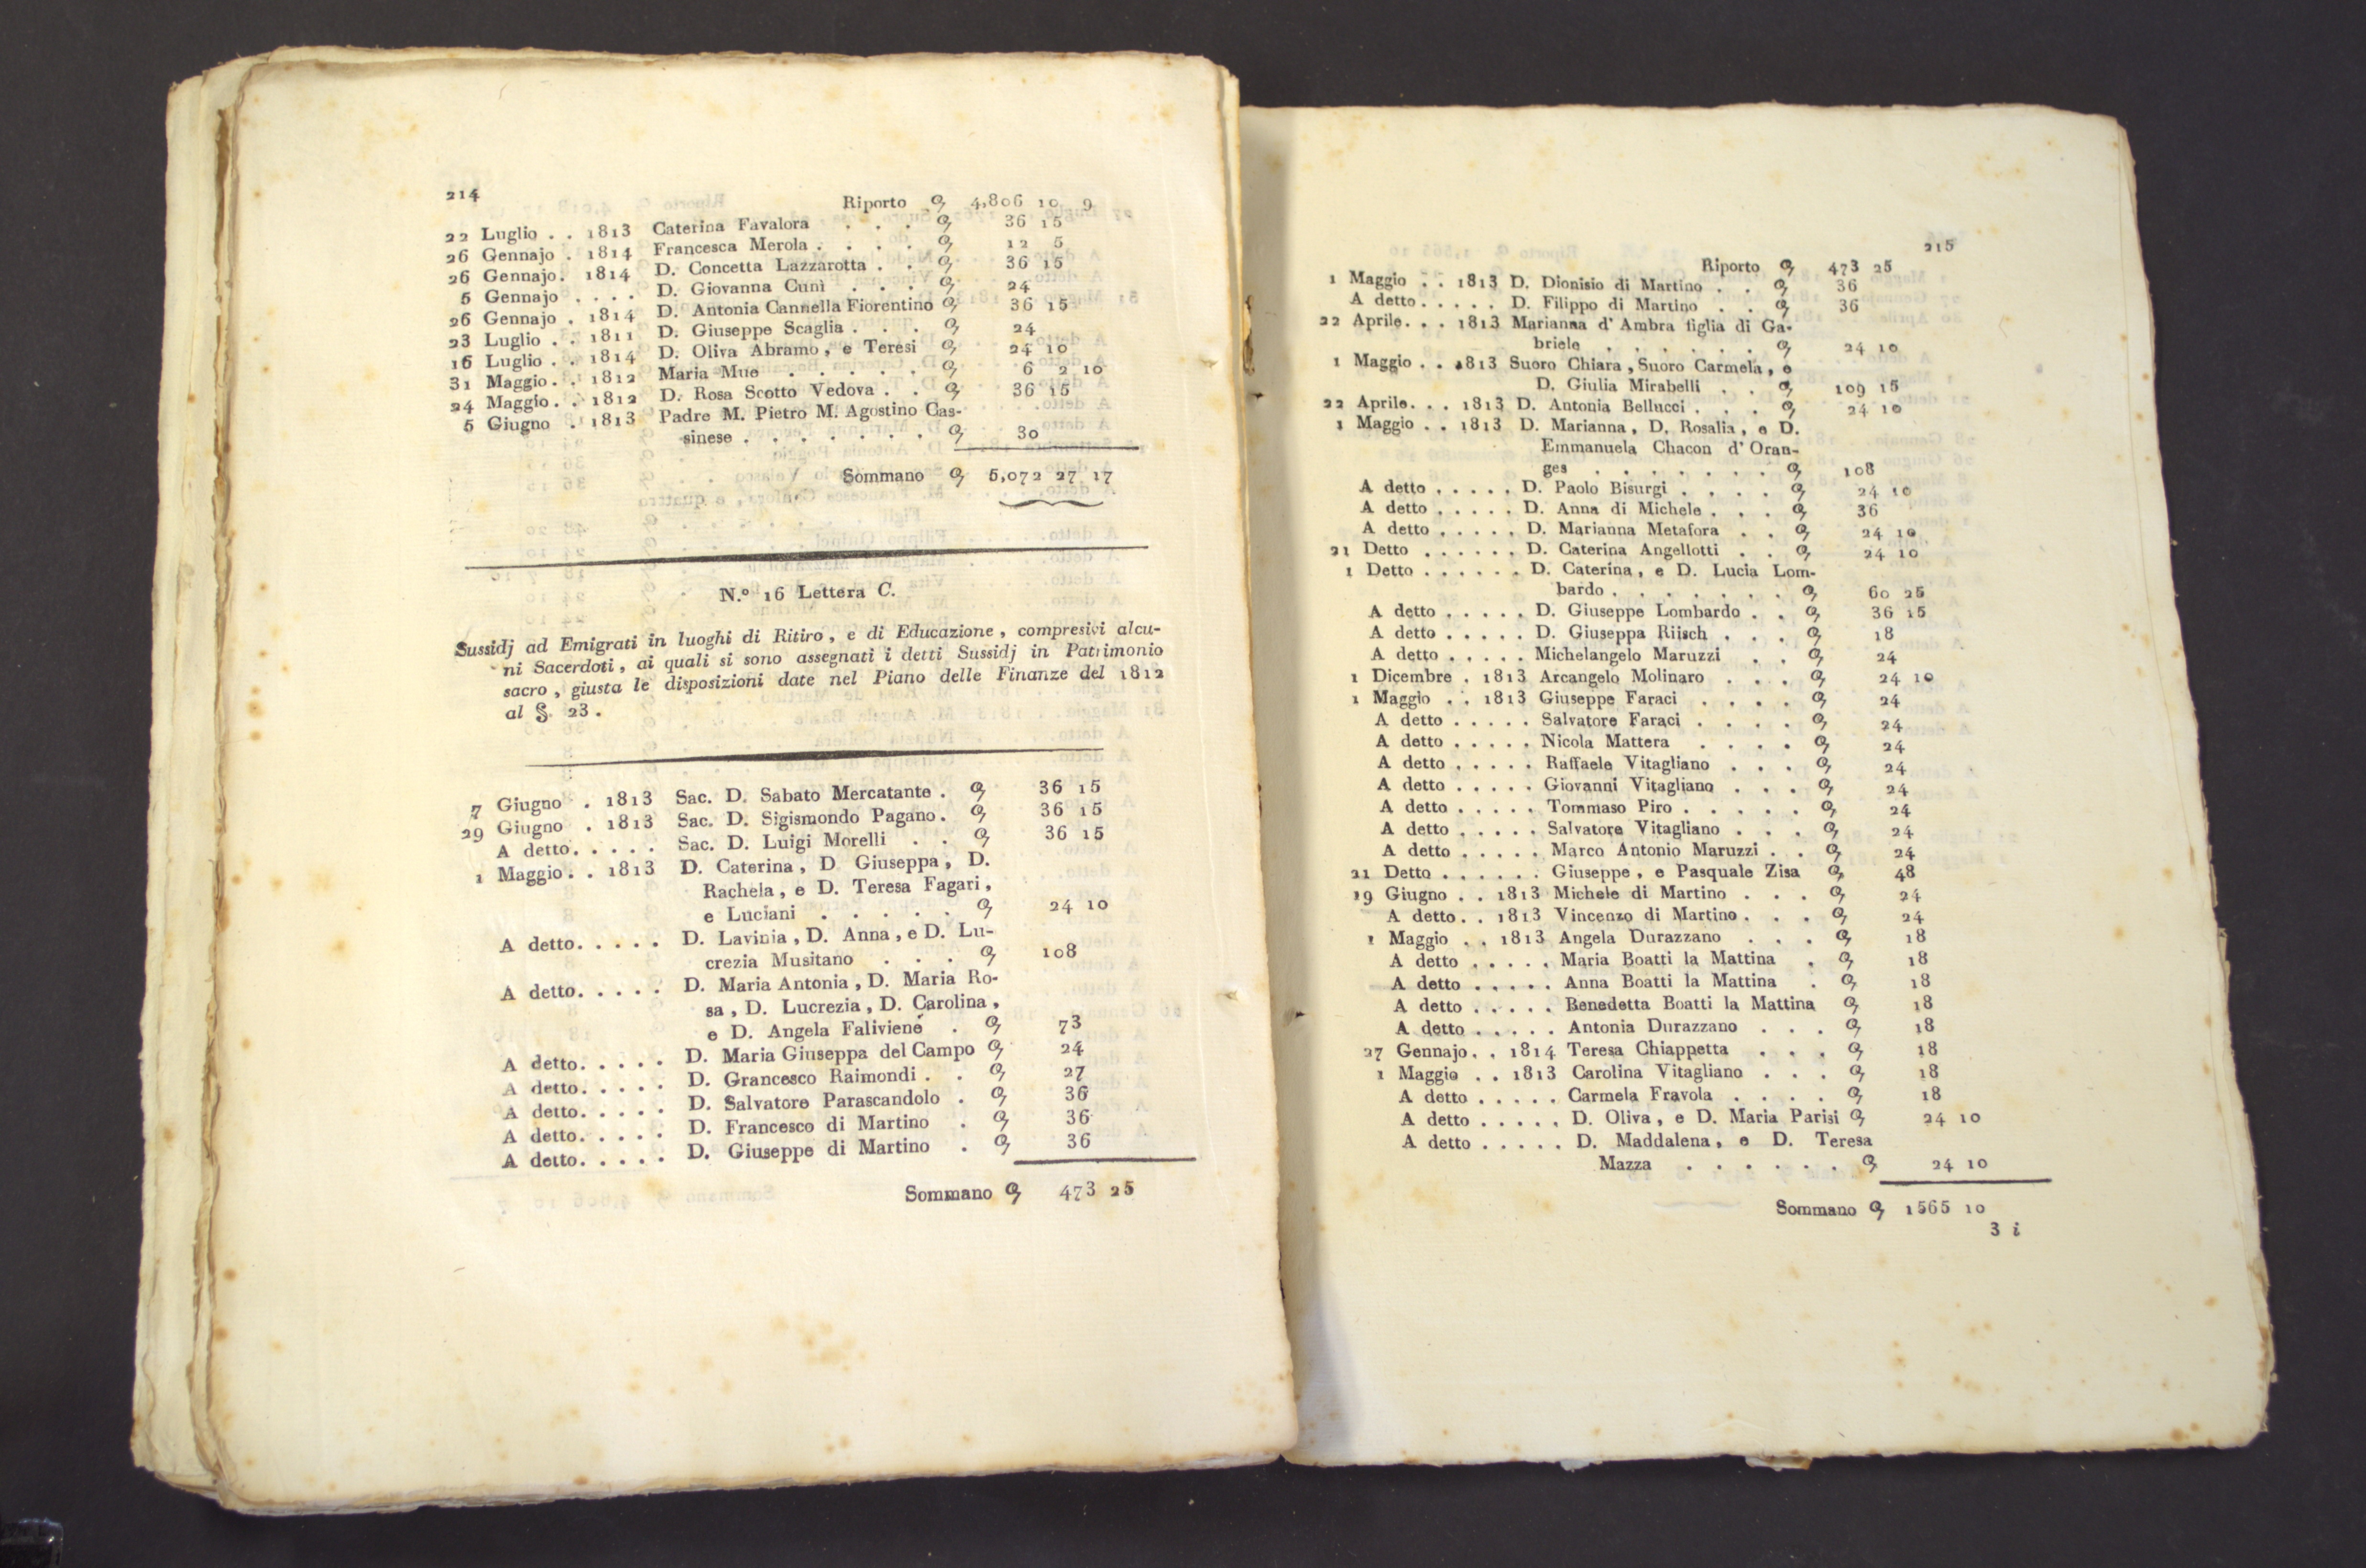 214
Riporto 9 4,806 10 9
22 Luglio . . 1813 Caterina Favalora . . . 9 36 15
26 Gennajo . 1814 Francesca Merola . . . . 9 12 5
26 Gennajo. 1814 D. Concetta Lazzarotta . . 9 36 15
5 Gennajo . . . . D. Giovanna Cunì . . . 9 24
26 Gennajo . 1814 D. Antonia Cannella Fiorentino 9 36 15
23 Luglio . . 1811 D. Giuseppe Scaglia . . . 9 24
16 Luglio . . 1814 D. Oliva Abramo, e Teresi 9 24 10
31 Maggio. . 1812 Maria Muo . . . . . 9 6 2 10
24 Maggio. . 1812 D. Rosa Scotto Vedova . . 9 36 15
5 Giugno . 1813 Padre M. Pietro M. Agostino Cas-
sinese . . . . . . . 9 30
Sommano 9 5,072 27 17
N.º 16 Lettera C.
Sussidj ad Emigrati in luoghi di Ritiro, e di Educazione, compresivi alcu-
ni Sacerdoti, ai quali si sono assegnati i detti Sussidj in Patrimonio
sacro, giusta le disposizioni date nel Piano delle Finanze del 1812
al §. 23.
7 Giugno . 1813 Sac. D. Sabato Mercatante . 9 36 15
29 Giugno . 1813 Sac. D. Sigismondo Pagano. 9 36 15
A detto. . . . . Sac. D. Luigi Morelli . . 9 36 15
1 Maggio. . 1813 D. Caterina, D Giuseppa, D.
Rachela, e D. Teresa Fagari,
e Luciani . . . . . 9 24 10
A detto. . . . . D. Lavinia, D. Anna, e D. Lu-
crezia Musitano . . . 9 108
A detto. . . . . D. Maria Antonia, D. Maria Ro-
sa, D. Lucrezia, D. Carolina,
e D. Angela Faliviene . 9 73
A detto. . . . . D. Maria Giuseppa del Campo 9 24
A detto. . . . . D. Grancesco Raimondi . . 9 27
A detto. . . . . D. Salvatore Parascandolo . 9 36
A detto. . . . . D. Francesco di Martino . 9 36
A detto. . . . . D. Giuseppe di Martino . 9 36
Sommano 9 473 25
215
Riporto 9 473 25
1 Maggio . . 1813 D. Dionisio di Martino . . 9 36
A detto . . . . . D. Filippo di Martino . . 9 36
22 Aprile. . . 1813 Marianna d' Ambra figlia di Ga-
briele . . . . . . 9 24 10
1 Maggio . . 1813 Suoro Chiara, Suoro Carmela, e
D. Giulia Mirabelli . . 9 109 15
22 Aprile. . . 1813 D. Antonia Bellucci . . . 9 24 10
1 Maggio . . 1813 D. Marianna, D. Rosalia, e D.
Emmanuela Chacon d' Oran-
ges . . . . . . . 9 108
A detto . . . . . D. Paolo Bisurgi . . . . 9 24 10
A detto . . . . . D. Anna di Michele . . . 9 36
A detto . . . . . D. Marianna Metafora . . 9 24 10
21 Detto . . . . . . D. Caterina Angellotti . . 9 24 10
1 Detto . . . . . . D. Caterina, e D. Lucia Lom-
bardo . . . . . . . 9 60 25
A detto . . . . . D. Giuseppe Lombardo . . 9 36 15
A detto . . . . . D. Giuseppa Riisch . . . 9 18
A detto . . . . . Michelangelo Maruzzi . . 9 24
1 Dicembre . 1813 Arcangelo Molinaro . . . 9 24 10
1 Maggio . . 1813 Giuseppe Faraci . . . . 9 24
A detto . . . . . Salvatore Faraci . . . . 9 24
A detto . . . . . Nicola Mattera . . . . 9 24
A detto . . . . . Raffaele Vitagliano . . . 9 24
A detto . . . . . Giovanni Vitagliano . . . 9 24
A detto . . . . . Tommaso Piro . . . . . 9 24
A detto . . . . . Salvatore Vitagliano . . . 9 24
A detto . . . . . Marco Antonio Maruzzi . . 9 24
21 Detto . . . . . . Giuseppe, e Pasquale Zisa 9 48
19 Giugno . . 1813 Michele di Martino . . . 9 24
A detto. . 1813 Vincenzo di Martino. . . 9 24
1 Maggio . . 1813 Angela Durazzano . . . 9 18
A detto . . . . . Maria Boatti la Mattina . 9 18
A detto . . . . . Anna Boatti la Mattina . 9 18
A detto . . . . . Benedetta Boatti la Mattina 9 18
A detto . . . . . Antonia Durazzano . . . 9 18
27 Gennajo. . 1814 Teresa Chiappetta . . . 9 18
1 Maggio . . 1813 Carolina Vitagliano . . . 9 18
A detto . . . . . Carmela Fravola . . . . 9 18
A detto . . . . . D. Oliva, e D. Maria Parisi 9 24 10
A detto . . . . . D. Maddalena, e D. Teresa
Mazza . . . . . . 9 24 10
Sommano 9 1565 10
3 i